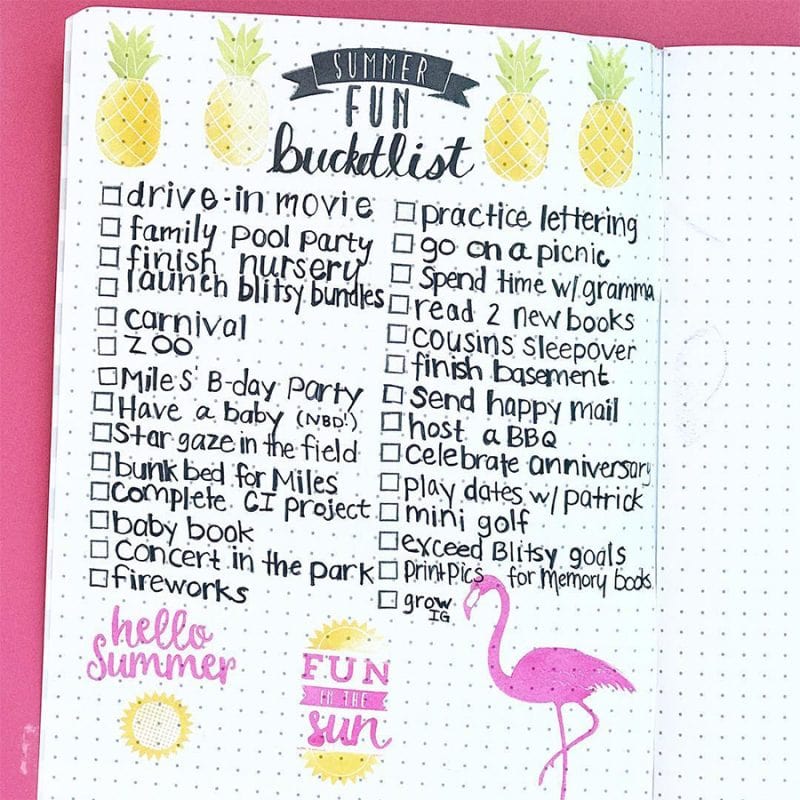 SUMMER
FUN
bucketlist
drive-in movie
family pool party
finish nursery
launch blitsy bundles
carnival
ZOO
Miles' B-day Party
Have a baby (NBD!)
Star gaze in the field
bunk bed for Miles
Complete CI project
baby book
Concert in the park
fireworks
practice lettering
go on a picnic
Spend time w/ gramma
read 2 new books
cousins sleepover
finish basement
Send happy mail
host a BBQ
Celebrate anniversary
play dates w/ patrick
mini golf
exceed Blitsy goals
Print Pics for Memory books
grow
IG
hello
Summer
FUN
IN THE
Sun